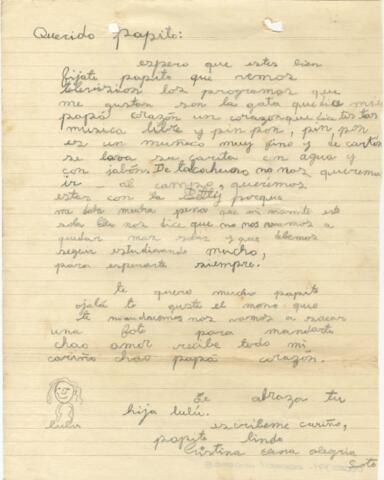 Querido papito:
espero que estes bien
fijate papito que vemos
televisión los programas que
me gustan son la gata que dice miau
papá corazón un corazon que dice tic tac
musica libre y pin pon, pin pon
es un muñeco muy fino y de cartón
se lava su carita con agua y
con jabón. De talcahuano no nos queremos
ir al campo, queremos
estar con la Betty porque
me da mucha pena que mi mamita este
sola Ella nos dice que no nos vamos a
quedar mas solas y que debemos
seguir estudiando mucho,
para esperarte siempre.
te quero mucho papito
ojalá te guste el mono que
te mandamos nos vamos a sacar
una foto para mandarte
chao amor recibe todo mi
cariño chao papá corazón.
Te abraza tu
hija lulú.
lulu
escribeme cariño,
papito lindo
Cristina alegria
Soto